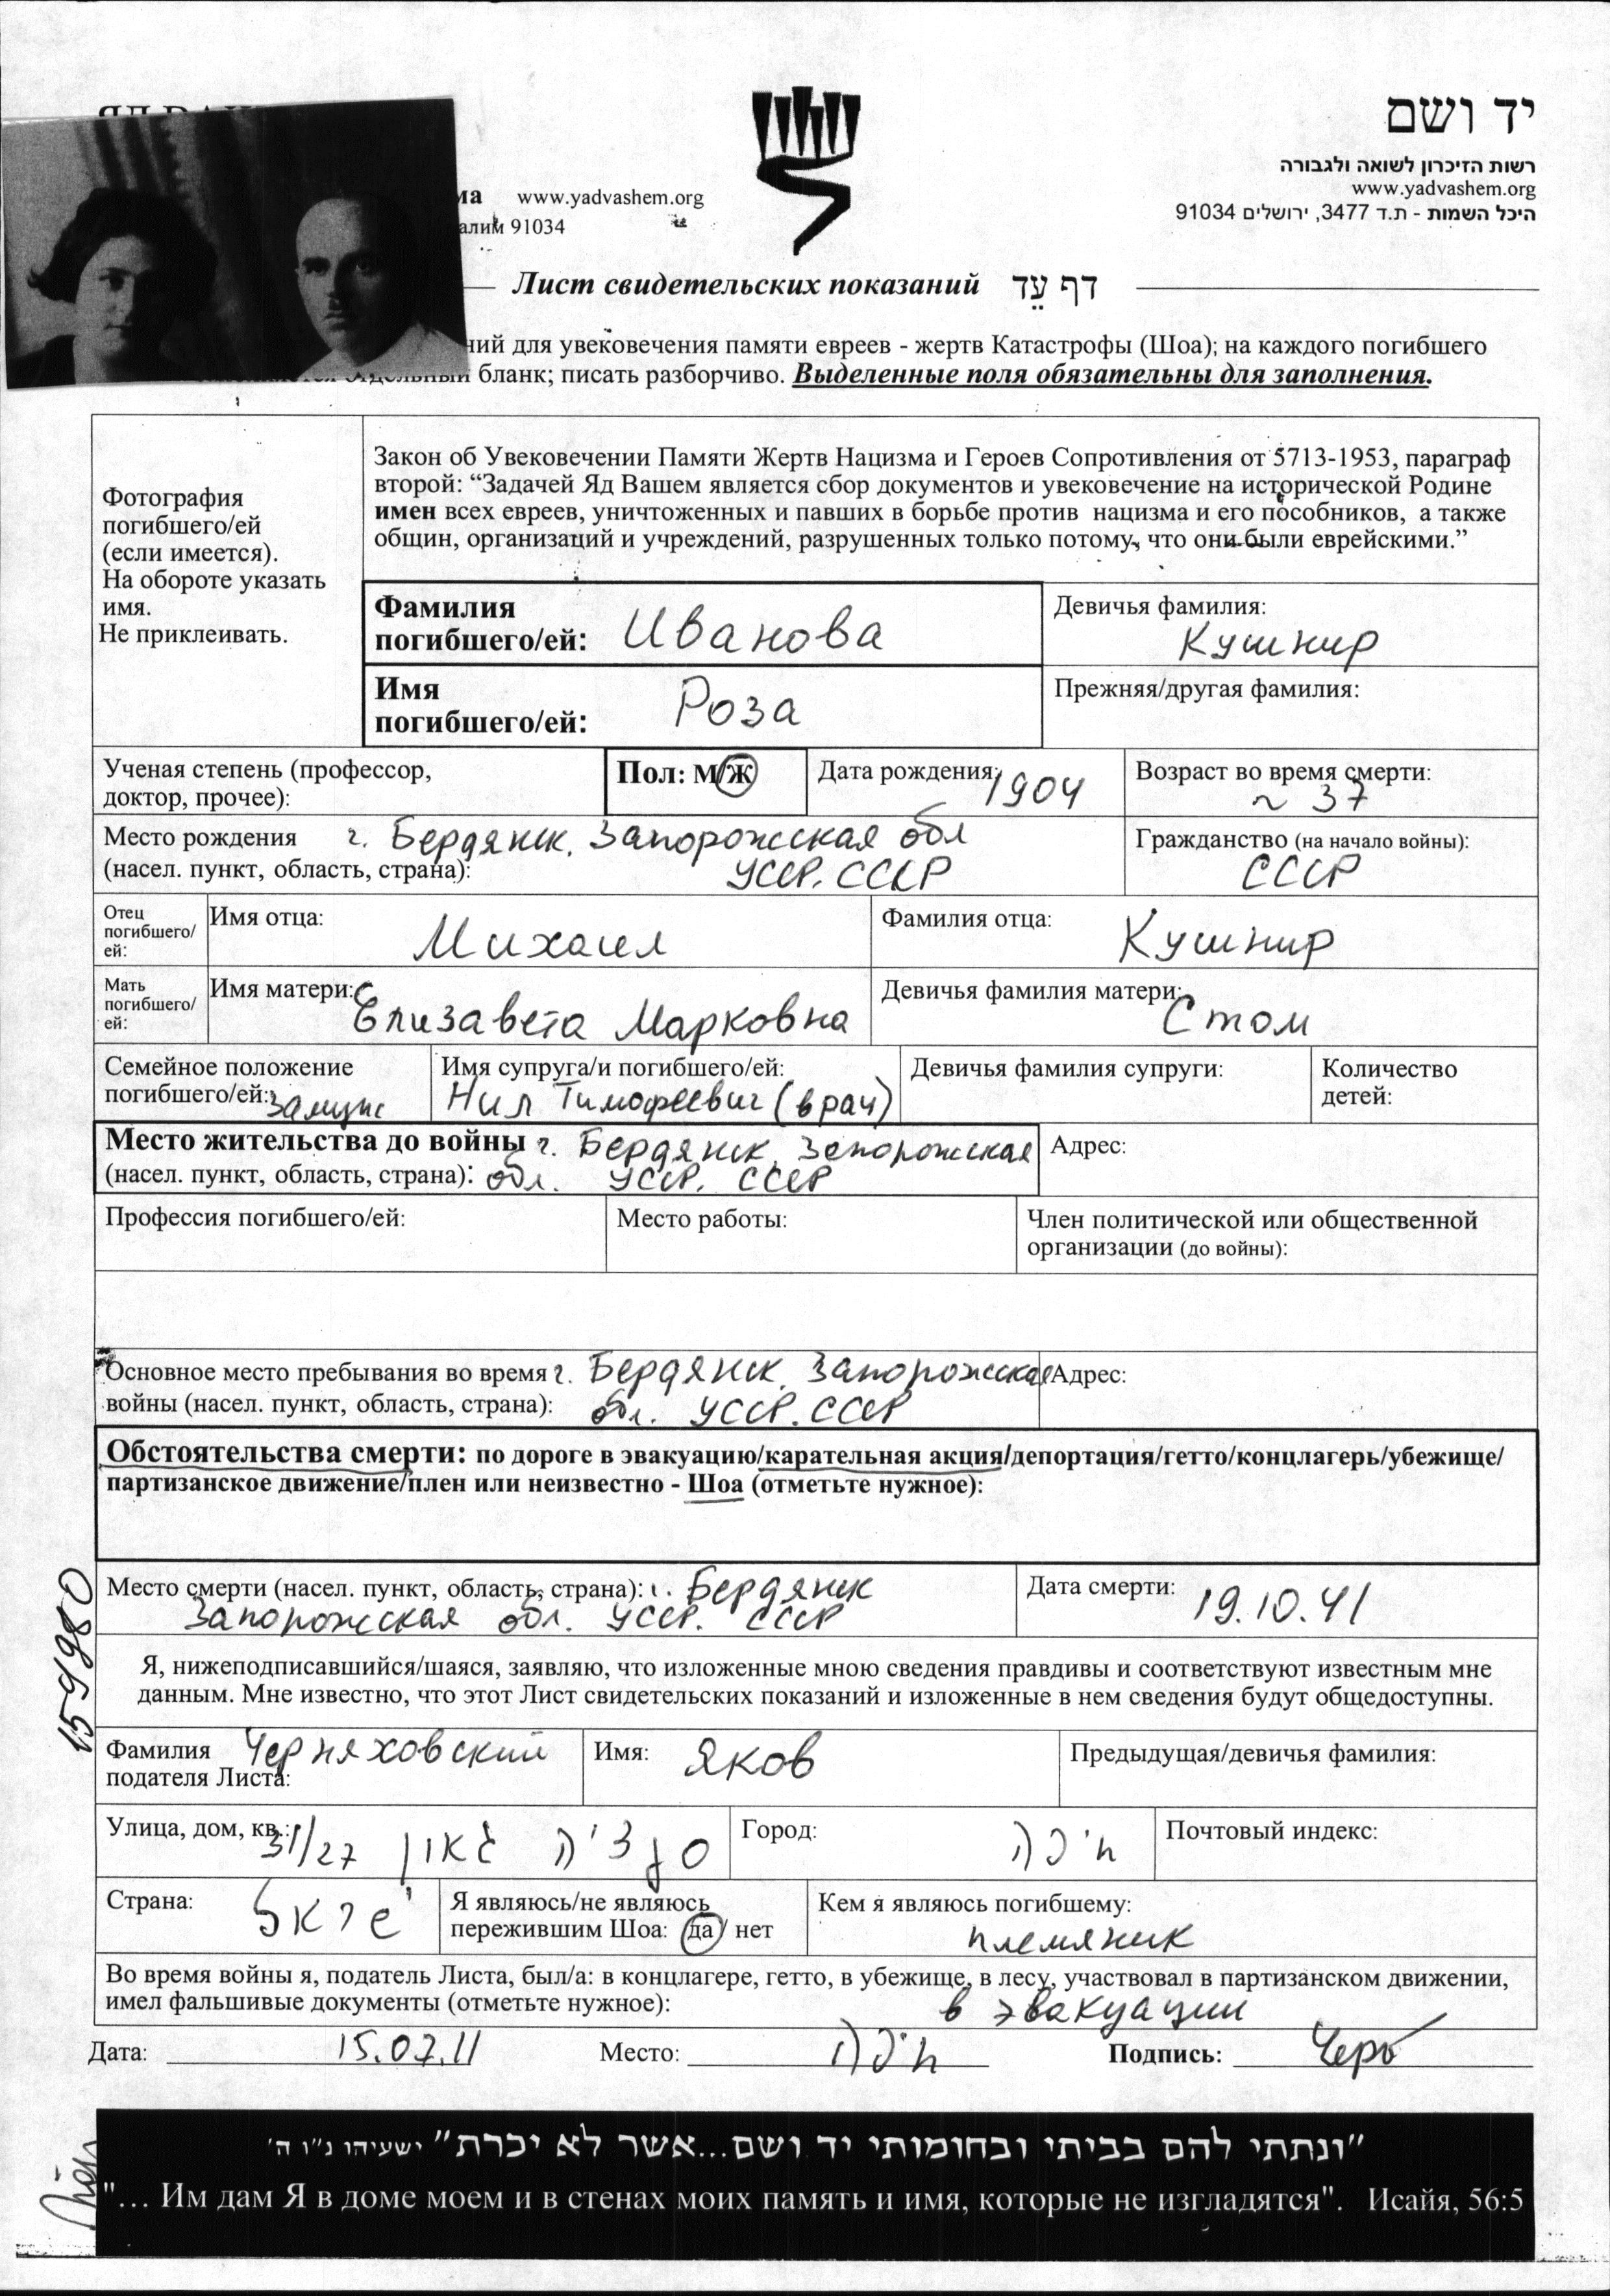 יד ושם
רשות הזיכרון לשואה ולגבורה
www.yadvashem.org
היכל השמות - ת.ד 3477, ירושלים 91034
ма www.yadvashem.org
алим 91034
Лист свидетельских показаний דף עֵד
ний для увековечения памяти евреев - жертв Катастрофы (Шоа); на каждого погибшего
бланк; писать разборчиво. Выделенные поля обязательны для заполнения.
Фотография
погибшего/ей
(если имеется).
На обороте указать
имя.
Не приклеивать.
Закон об Увековечении Памяти Жертв Нацизма и Героев Сопротивления от 5713-1953, параграф
второй: “Задачей Яд Вашем является сбор документов и увековечение на исторической Родине
имен всех евреев, уничтоженных и павших в борьбе против нацизма и его пособников, а также
общин, организаций и учреждений, разрушенных только потому, что они были еврейскими.”
Фамилия
погибшего/ей: Иванова
Девичья фамилия:
Кушнир
Имя
погибшего/ей: Роза
Прежняя/другая фамилия:
Ученая степень (профессор,
доктор, прочее):
Пол: М/Ж
Дата рождения: 1904
Возраст во время смерти:
~ 37
Место рождения г. Бердянск. Запорожская обл
(насел. пункт, область, страна): УССР. СССР
Гражданство (на начало войны):
СССР
Отец
погибшего/
ей:
Имя отца:
Михаил
Фамилия отца:
Кушнир
Мать
погибшего/
ей:
Имя матери:
Елизавета Марковна
Девичья фамилия матери:
Стом
Семейное положение
погибшего/ей: замуж
Имя супруга/и погибшего/ей:
Нил Тимофеевич (врач)
Девичья фамилия супруги:
Количество
детей:
Место жительства до войны г. Бердянск Запорожская
(насел. пункт, область, страна): обл. УССР. СССР
Адрес:
Профессия погибшего/ей:
Место работы:
Член политической или общественной
организации (до войны):
Основное место пребывания во время г. Бердянск. Запорожская
войны (насел. пункт, область, страна): обл. УССР. СССР
Адрес:
Обстоятельства смерти: по дороге в эвакуацию/карательная акция/депортация/гетто/концлагерь/убежище/
партизанское движение/плен или неизвестно - Шоа (отметьте нужное):
Место смерти (насел. пункт, область, страна): г. Бердянск
Запорожская обл. УССР. СССР
Дата смерти: 19.10.41
159980
Я, нижеподписавшийся/шаяся, заявляю, что изложенные мною сведения правдивы и соответствуют известным мне
данным. Мне известно, что этот Лист свидетельских показаний и изложенные в нем сведения будут общедоступны.
Фамилия Черняховский
подателя Листа:
Имя: Яков
Предыдущая/девичья фамилия:
Улица, дом, кв.:
31/27 גאון
Город: חיפה
Почтовый индекс:
Страна: ישראל
Я являюсь/не являюсь
пережившим Шоа: да/ нет
Кем я являюсь погибшему:
племяник
Во время войны я, податель Листа, был/а: в концлагере, гетто, в убежище, в лесу, участвовал в партизанском движении,
имел фальшивые документы (отметьте нужное): в эвакуации
Дата: 15.07.11 Место: חיפה Подпись:
״ונתתי להם בביתי ובחומותי יד ושם...אשר לא יכרת״ ישעיהו נ״ו ה׳
"... Им дам Я в доме моем и в стенах моих память и имя, которые не изгладятся". Исайя, 56:5